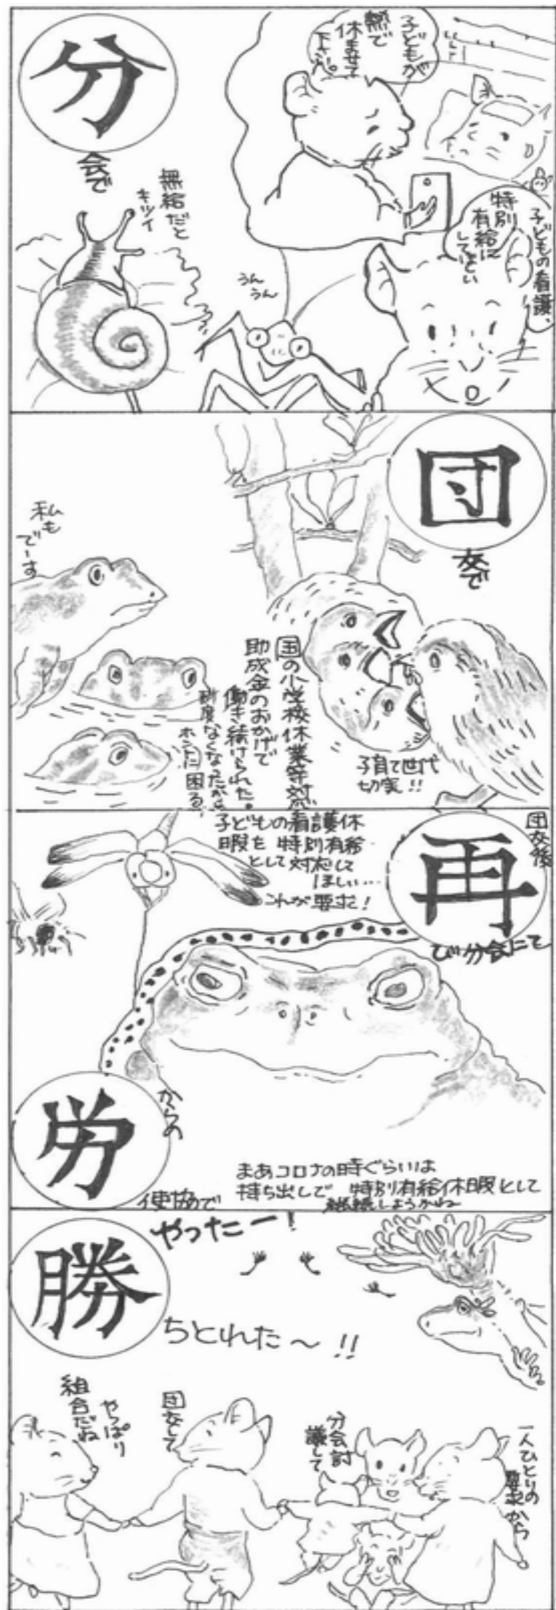 分
会で
子どもが
熱で
休ませて
下さい。
子どもの看護、
特別
有給に
してほしい
無給だと
キツイ
うん
うん
団
交で
私も
でーす
子育て世代
切実!!
国の小学校休業等対応
助成金のおかげで
働き続けられた。
制度なくなったから
ホントに困る。
団交後
再
び分会にて
子どもの看護休
暇を特別有給
として対応して
ほしい…
これが要求!
労
使協で
からの
まあコロナの時ぐらいは
持ち出しで 特別有給休暇として
継続しようかね
勝
やったー!
ちとれた〜!!
一人ひとりの
要求から
分会討
議して
団交して
やっぱり
組合だね